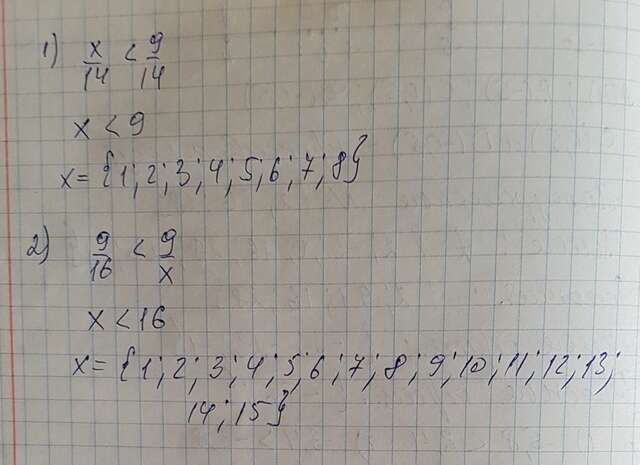 1) x/14 < 9/14
x < 9
x = {1; 2; 3; 4; 5; 6; 7; 8}
2) 9/16 < 9/x
x < 16
x = {1; 2; 3; 4; 5; 6; 7; 8; 9; 10; 11; 12; 13;
14; 15}